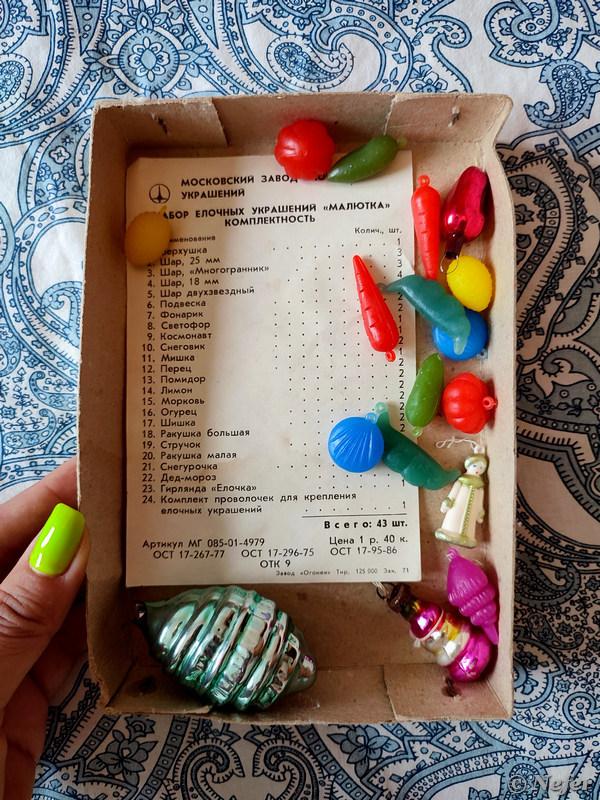 МОСКОВСКИЙ ЗАВОД
УКРАШЕНИЙ
ЕЛОЧНЫХ УКРАШЕНИЙ «МАЛЮТКА»
КОМПЛЕКТНОСТЬ
Колич., шт.
1
2. Шар, 25 мм 3
3. Шар, «Многогранник» 3
4. Шар, 18 мм 4
5. Шар двухзвездный
6. Подвеска
7. Фонарик
8. Светофор
9. Космонавт
10. Снеговик
11. Мишка
12. Перец
13. Помидор
14. Лимон
15. Морковь
16. Огурец
17. Шишка
18. Ракушка большая
19. Стручок
20. Ракушка малая
21. Снегурочка
22. Дед-мороз
23. Гирлянда «Елочка»
24. Комплект проволочек для крепления
елочных украшений 1
Всего: 43 шт.
Артикул МГ 085-01-4979 Цена 1 р. 40 к.
ОСТ 17-267-77 ОСТ 17-296-75 ОСТ 17-95-86
ОТК 9
Завод «Огонек» Тир. 125 000 Зак. 71
© Nefer